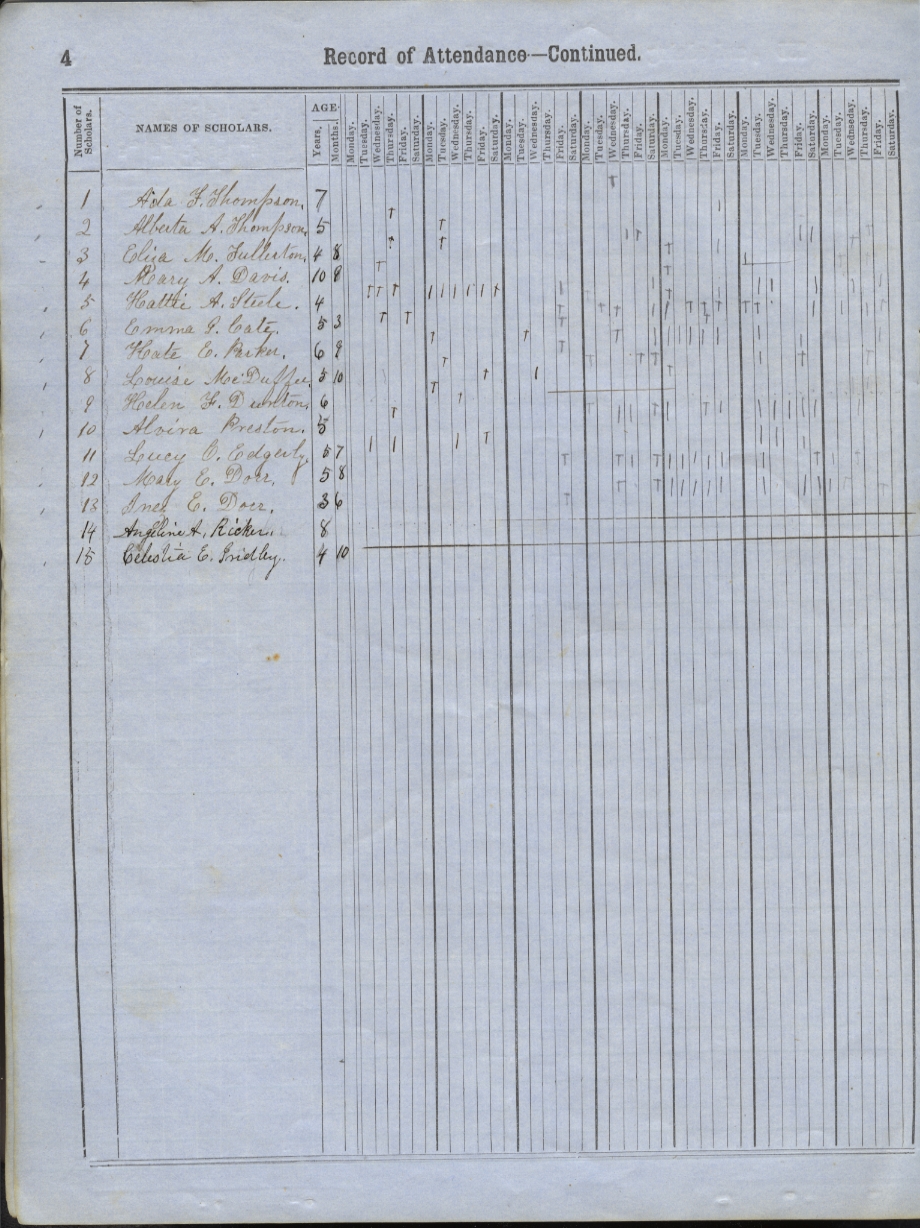 4
Record of Attendance—Continued.
Number of Scholars.
NAMES OF SCHOLARS.
AGE
Years,
Months.
Monday. Tuesday. Wednesday. Thursday. Friday. Saturday. Monday. Tuesday. Wednesday. Thursday. Friday. Saturday. Monday. Tuesday. Wednesday. Thursday. Friday. Saturday. Monday. Tuesday. Wednesday. Thursday. Friday. Saturday. Monday. Tuesday. Wednesday. Thursday. Friday. Saturday. Monday. Tuesday. Wednesday. Thursday. Friday. Saturday. Monday. Tuesday. Wednesday. Thursday. Friday. Saturday.
1 Ada F. Thompson, 7
2 Alberta A. Thompson, 5
3 Eliza M. Fullerton, 4 8
4 Mary A. Davis. 10 8
5 Hattie A. Steele. 4
6 Emma G. Cate, 5 3
7 Kate E. Parker, 6 9
8 Louise McDuffee, 5 10
9 Helen F. Dunton, 6
10 Alvira Preston. 5
11 Lucy O. Edgerly, 5 7
12 Mary E. Dorr, 5 8
13 Inez E. Dorr, 3 6
14 Angeline A. Ricker. 8
15 Celestia E. Gridley. 4 10